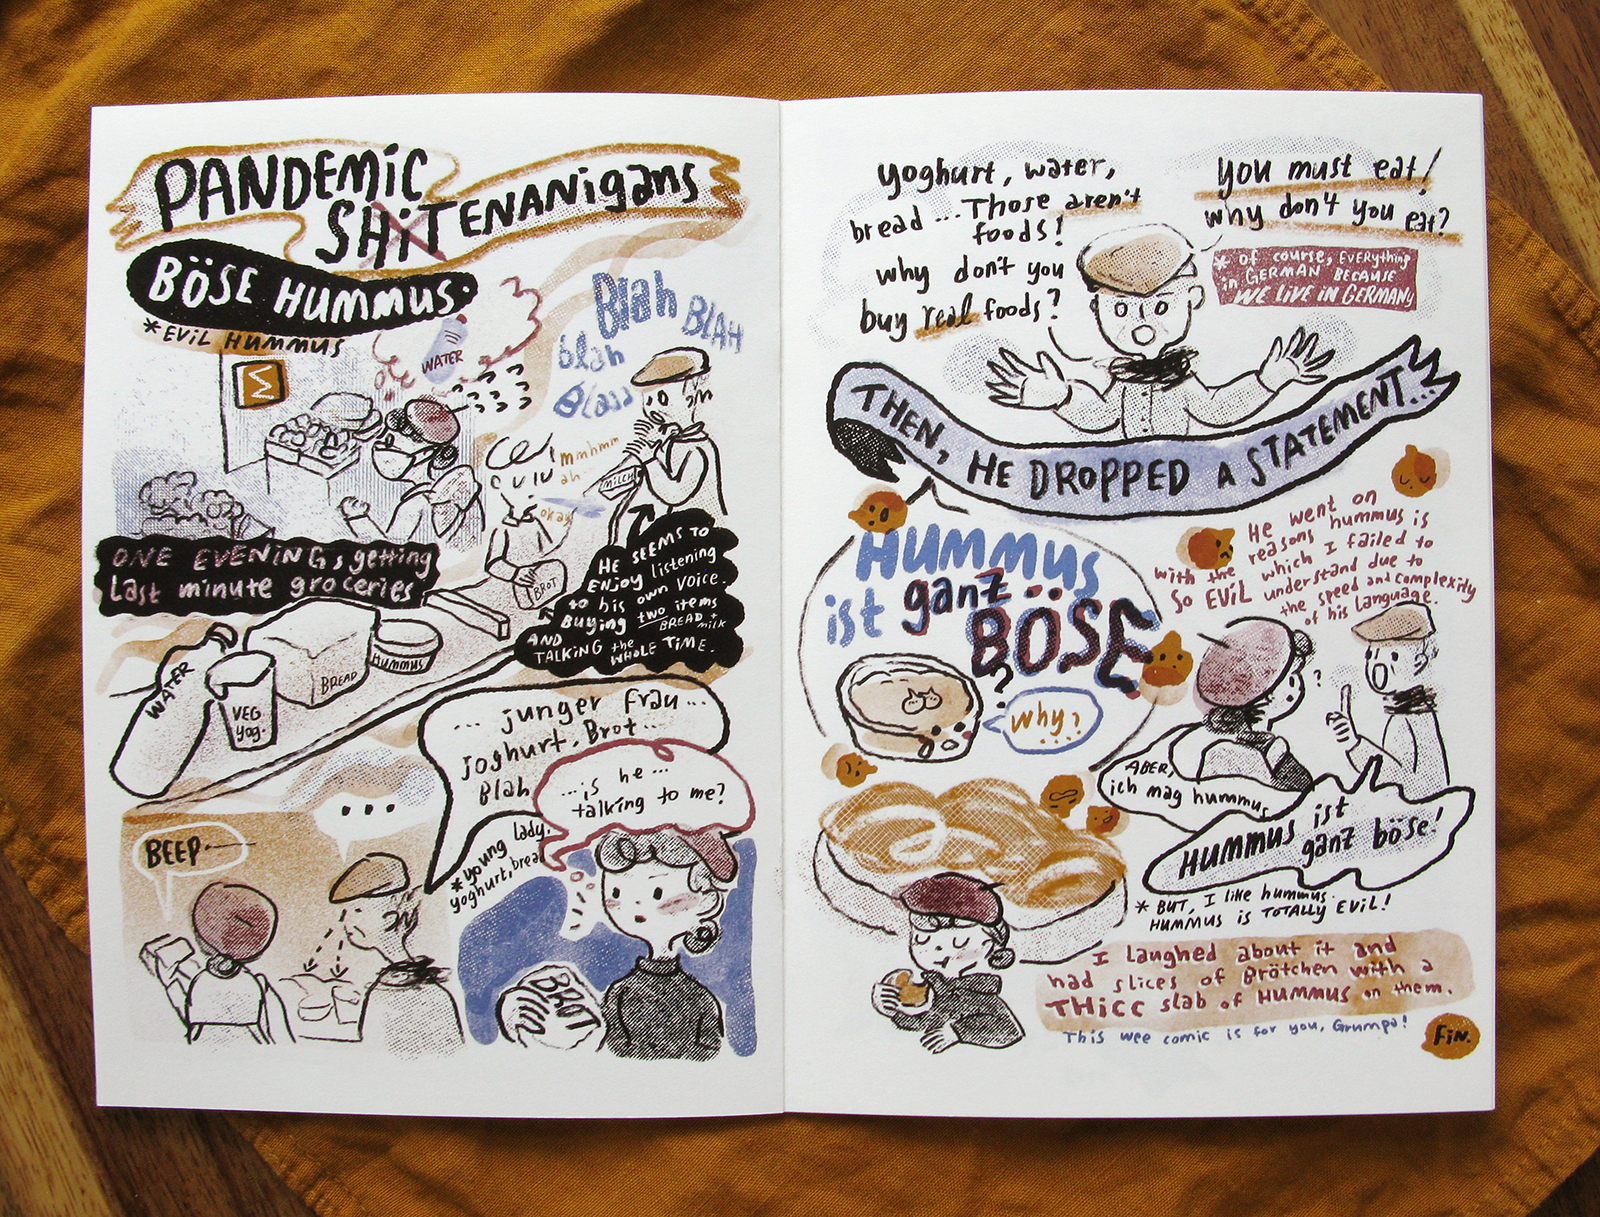 PANDEMIC
SHiTENANigans
BÖSE HUMMUS
*EViL HUMMUS
WATER
Blah BLAH
blah
Blaaa
mmhmm
ah
okay
MILCH
BROT
ONE EVENING, getting
Last minute groceries
HE SEEMS TO
ENJOY listening
to his own voice.
Buying two items
BREAD + milk
AND
TALKING the
WHOLE TIME.
WATER
VEG
yog.
BREAD
HUMMUS
... junger Frau...
Joghurt, Brot...
Blah
...is he...
talking to me?
*young lady,
yoghurt, bread
...
BEEP
BROT
yoghurt, water,
bread ... Those aren't
foods!
why don't you
buy real foods?
you must eat!
why don't you eat?
* of course, EVERything
in GERMAN BECAUSE
WE LIVE IN GERMANy
THEN, HE DROPPED A STATEMENT...
HUMMUS
ist ganz
BÖSE
?
why?
He went on
with the reasons hummus is
SO EViL which I failed to
understand due to
the speed and complexity
of his language.
?
ABER,
ich mag hummus
HUMMUS ist
ganz böse!
* BUT, I like hummus
HUMMUS is TOTALLY EViL!
I laughed about it and
had slices of Brötchen with a
THicc slab of HUMMUS on them.
This wee comic is for you, Grumpa!
FiN.